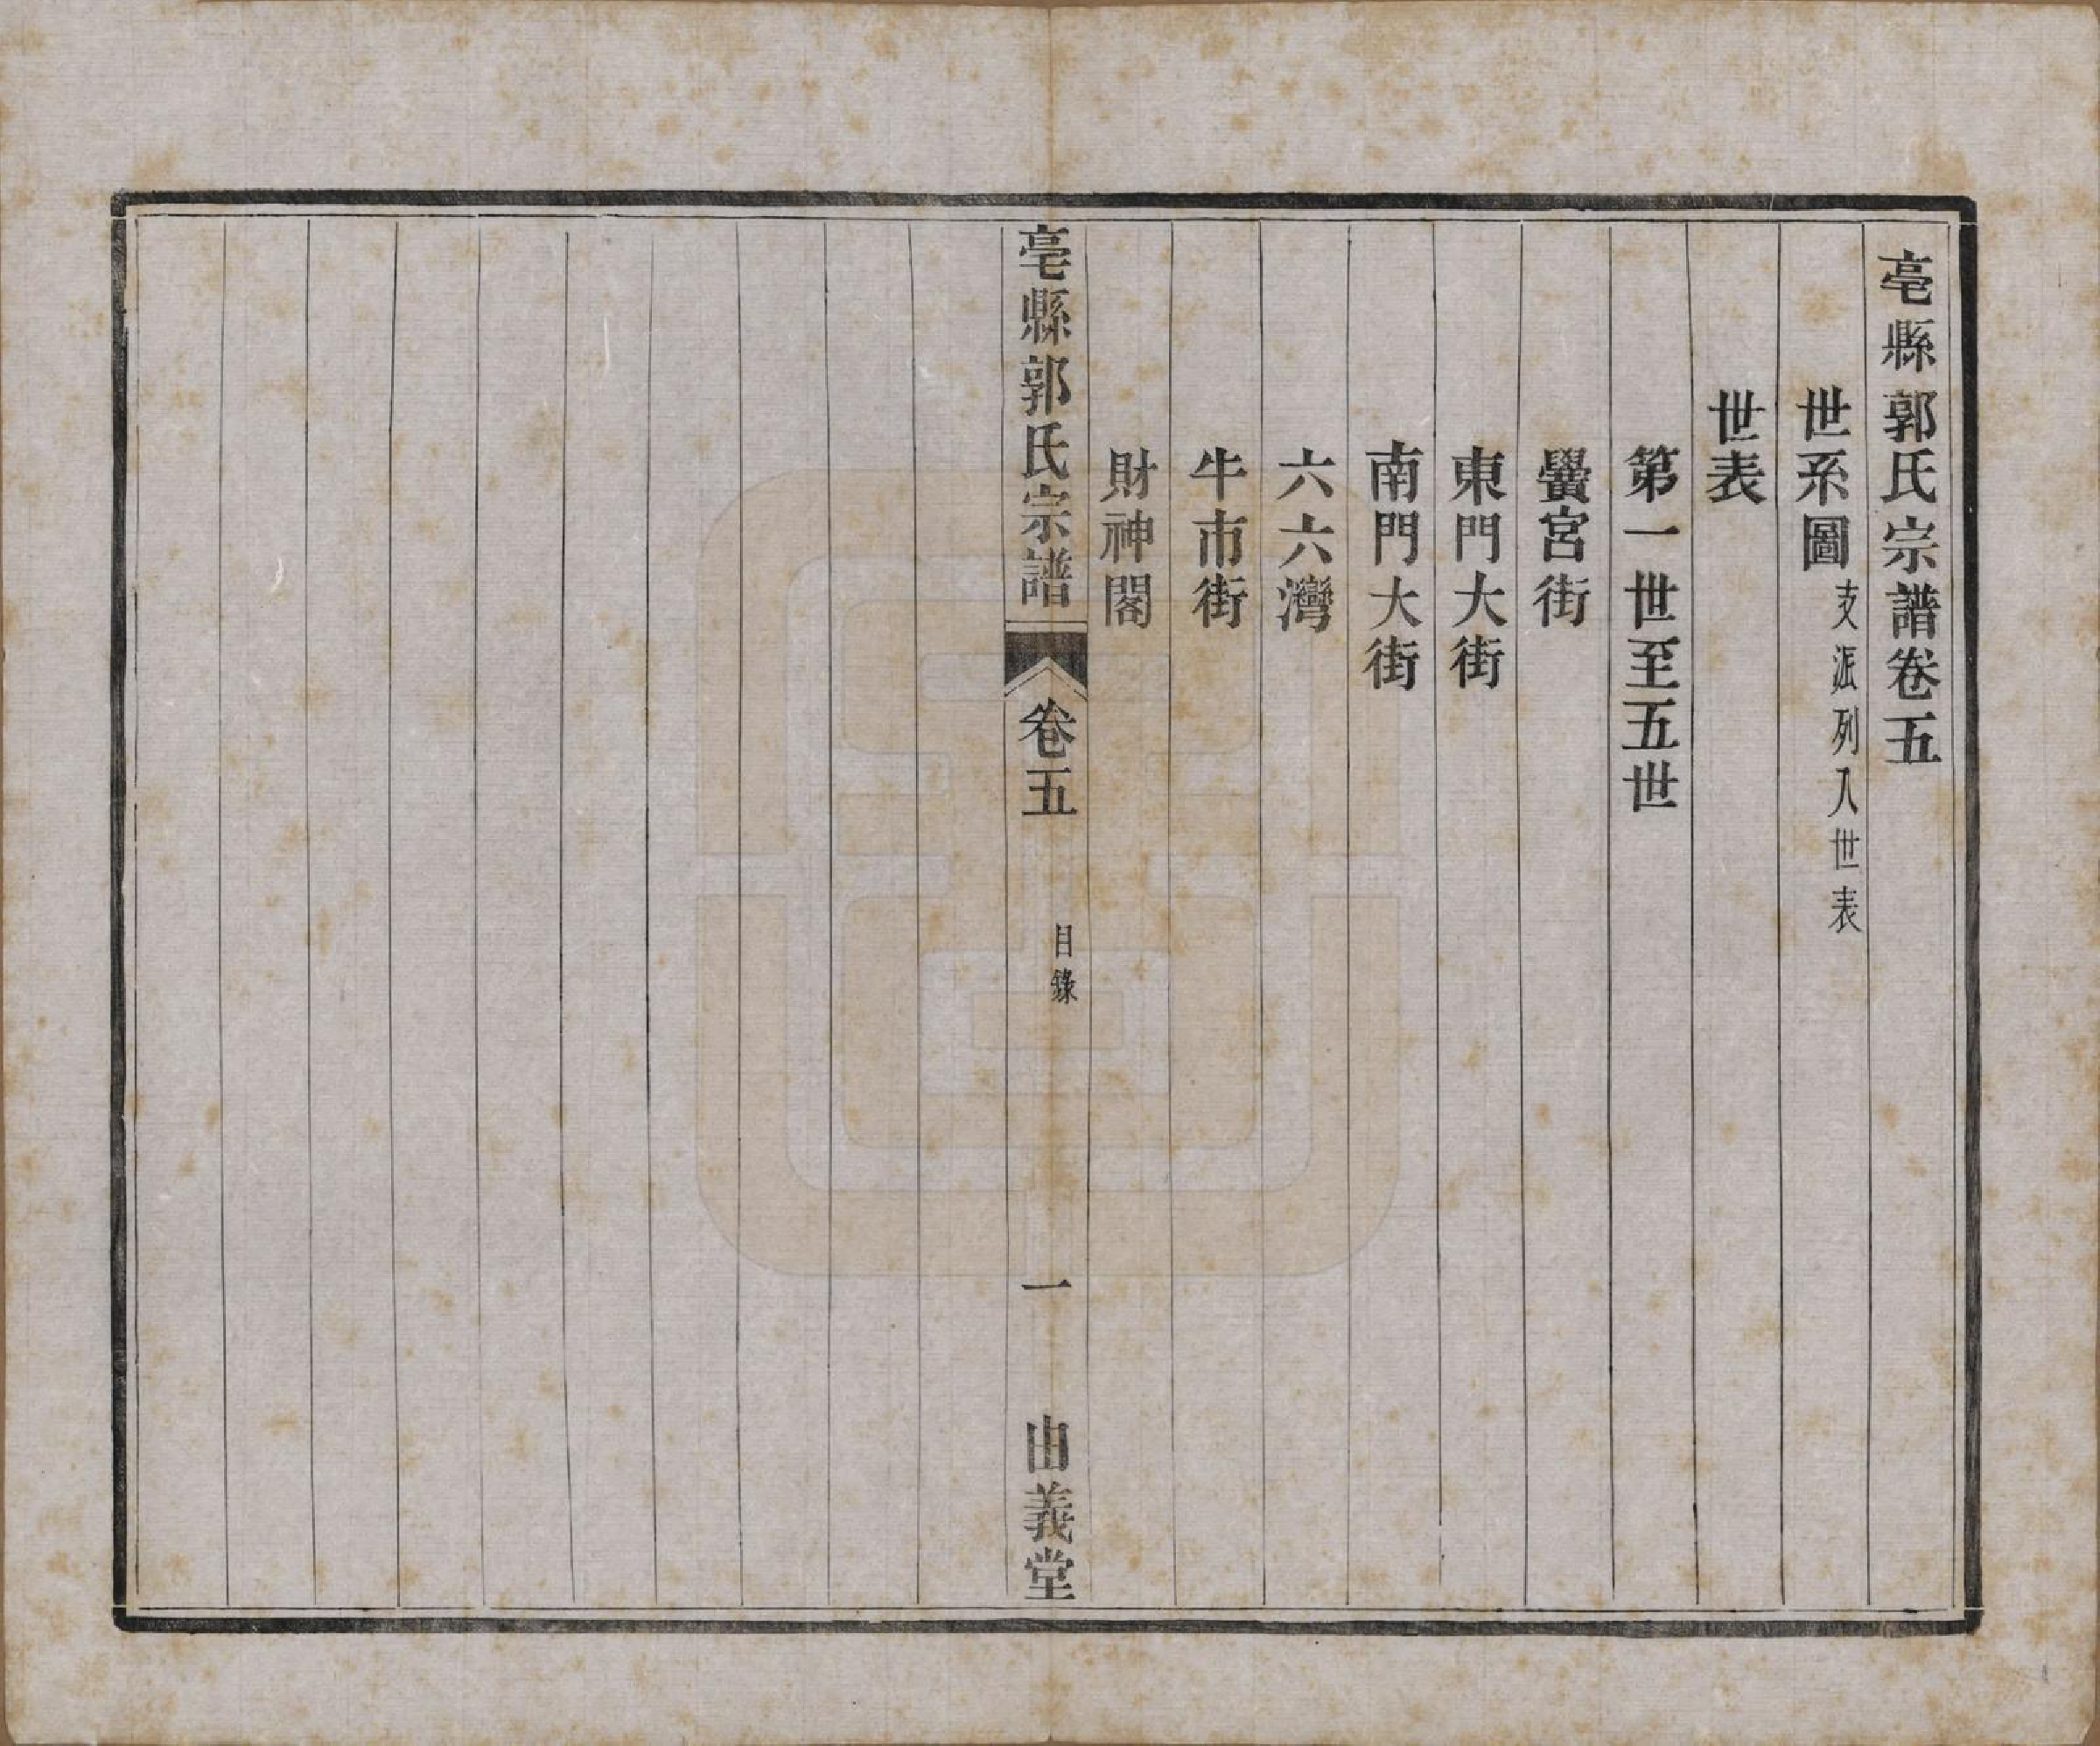 亳縣郭氏宗譜卷五
世系圖支派列入世表
世表
第一世至五世
黌宮街
東門大街
南門大街
六六灣
牛市街
財神閣
亳縣郭氏宗譜 卷五 目錄 一 由義堂